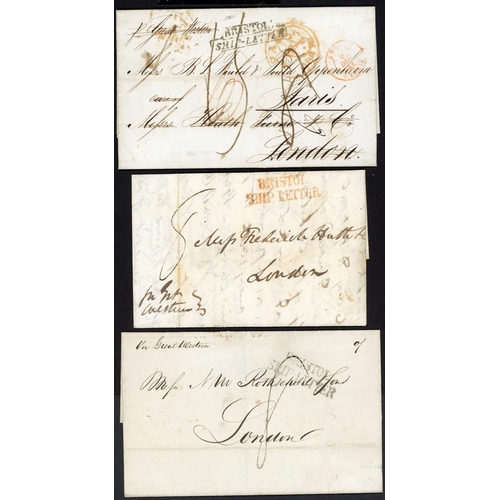 p Great Western
BRISTOL
SHIP-LETTER
Messrs B. L. Fould & Fould Oppenheim
Paris
Messrs Heath Furse & Co
London.
8
BRISTOL
SHIP LETTER
8
Messrs Frederick Huth &
London
per Grt
Western
Per Great Western
BRISTOL
SHIP LETTER
Messrs N M Rothschild & Sons
8
London